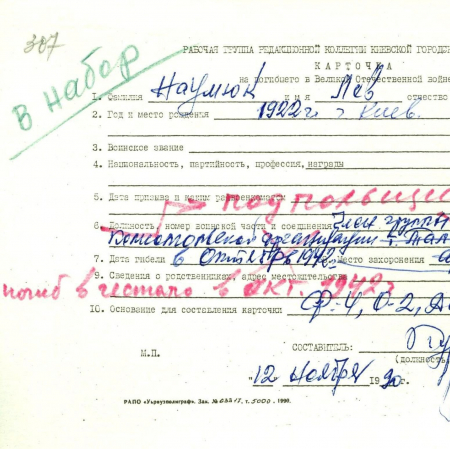 307
в набор
РАБОЧАЯ ГРУППА РЕДАКЦИОННОЙ КОЛЛЕГИИ КИЕВСКОЙ ГОРОДС
КАРТОЧКА
на погибшего в Великой Отечественной войне
1. Фамилия Наумюк имя Лев отчество
2. Год и место рождения 1922 г. г. Киев.
3. Воинское звание
4. Национальность, партийность, профессия, награды
5. Дата призыва и каким военкоматом
подпольщи
6. Должность, номер воинской части и соединения Член группы
комсомольской организации
7. Дата гибели в Октябре 1942. Место захоронения
9. Сведения о родственниках, адрес местожительства
погиб в гестапо в окт. 1942 г
10. Основание для составления карточки Ф-4, О-2,
СОСТАВИТЕЛЬ:
(должность,
М.П.
"12 ноября 1990 г.
РАПО «Укрвузполиграф». Зак. т. 5000. 1990.